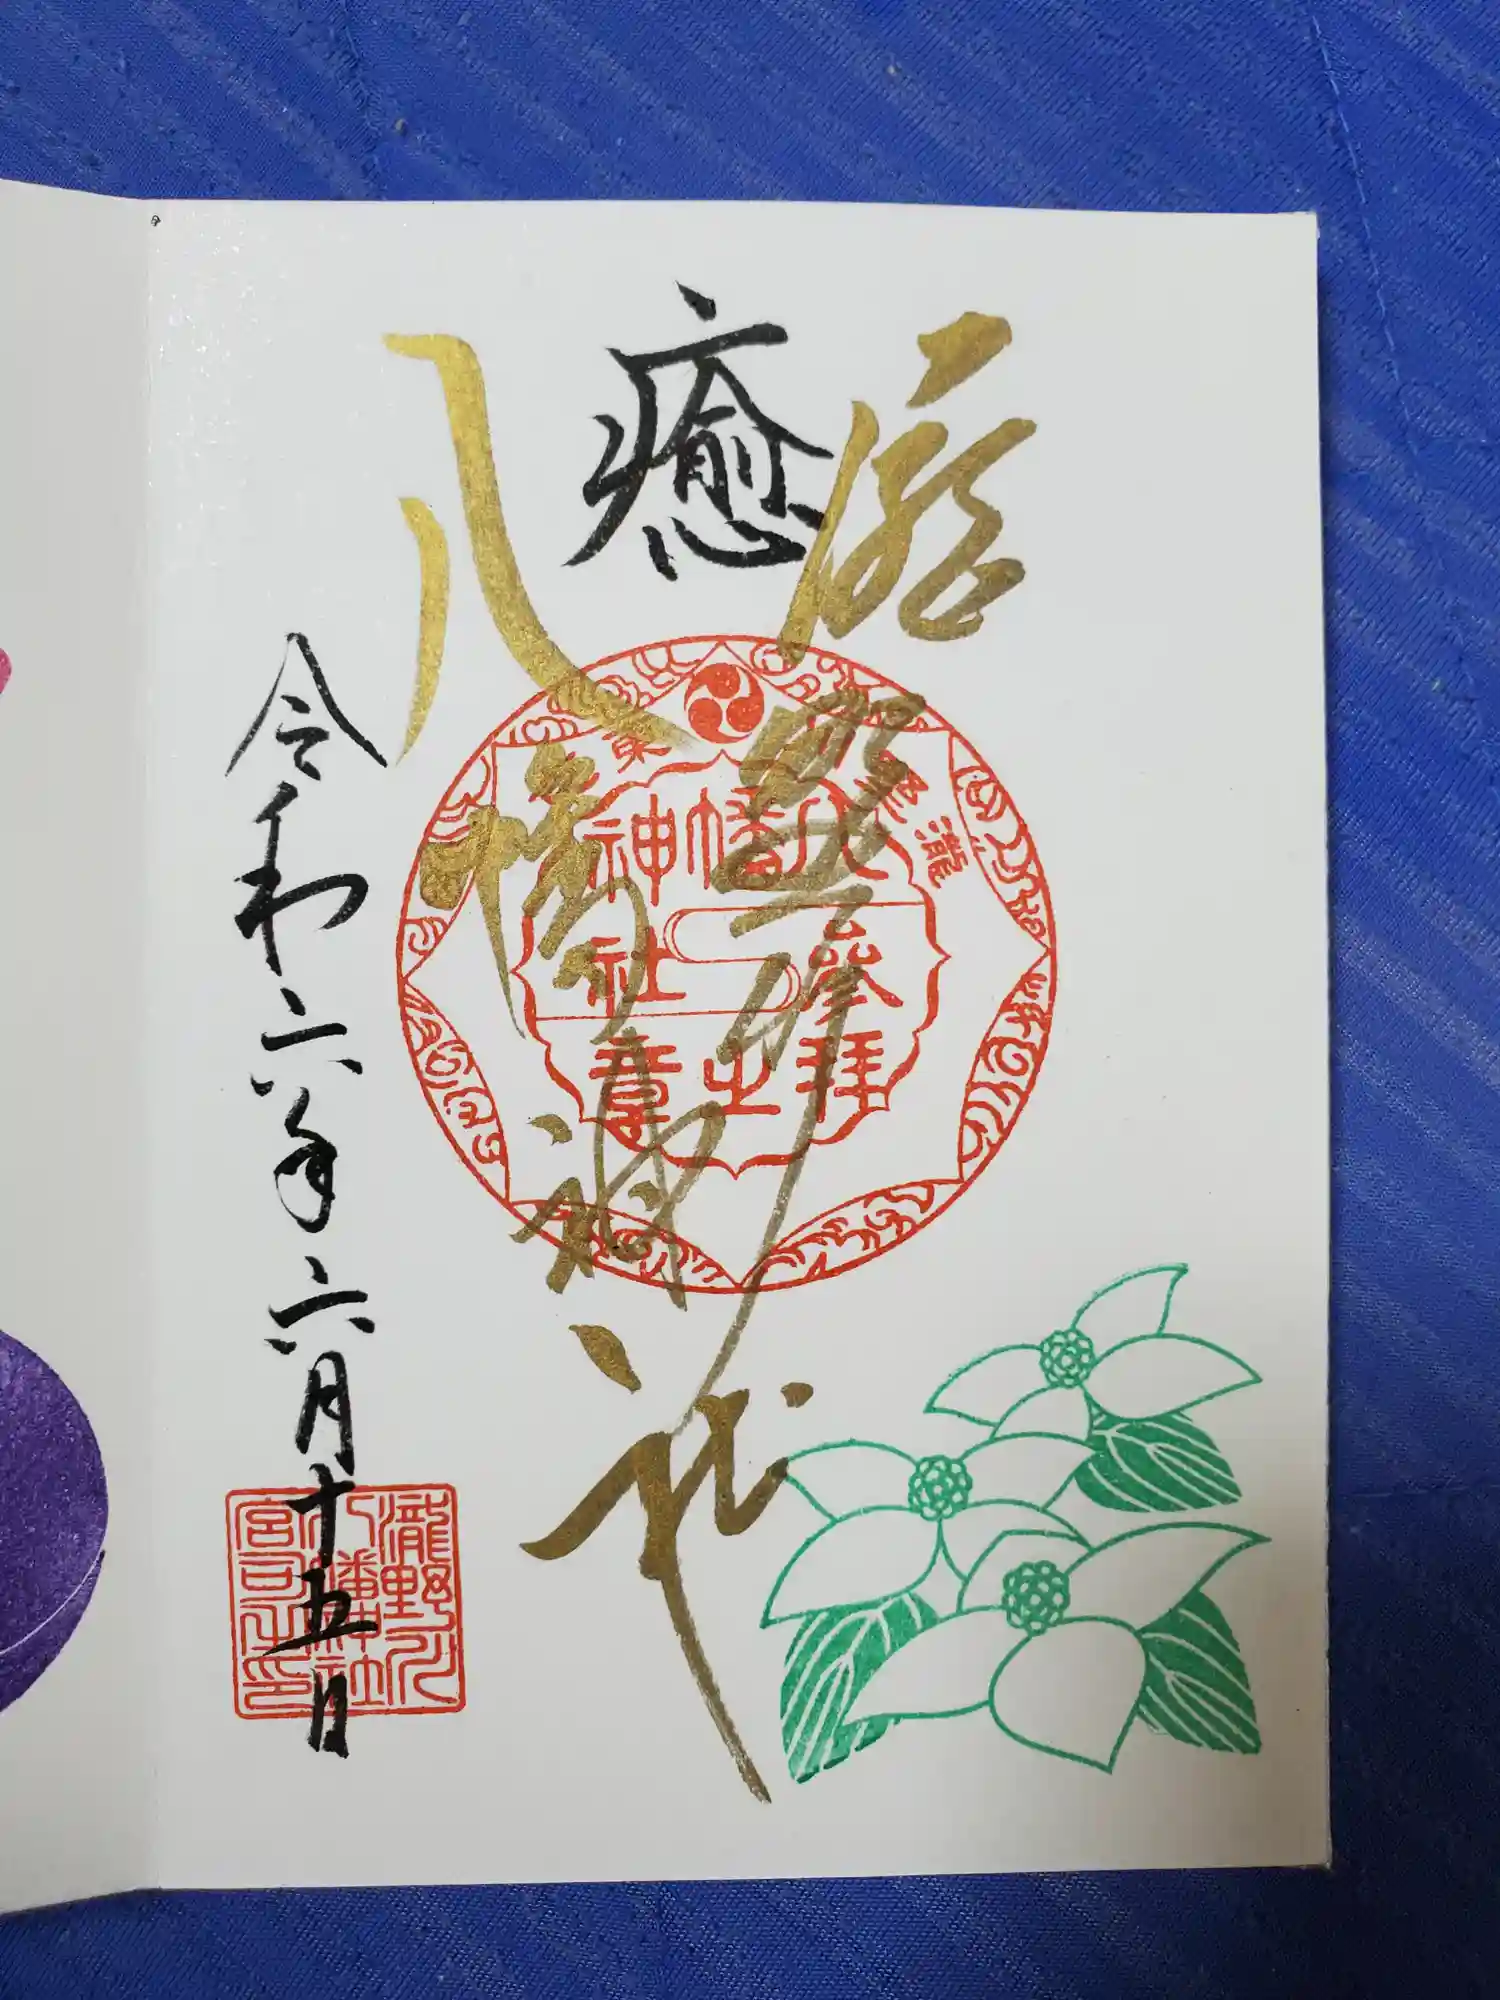 瀧野川
八幡神社
癒
瀧野川
東京
八幡神社
参拝之章
令和六年六月十五日
瀧野川
八幡神社
宮司之印